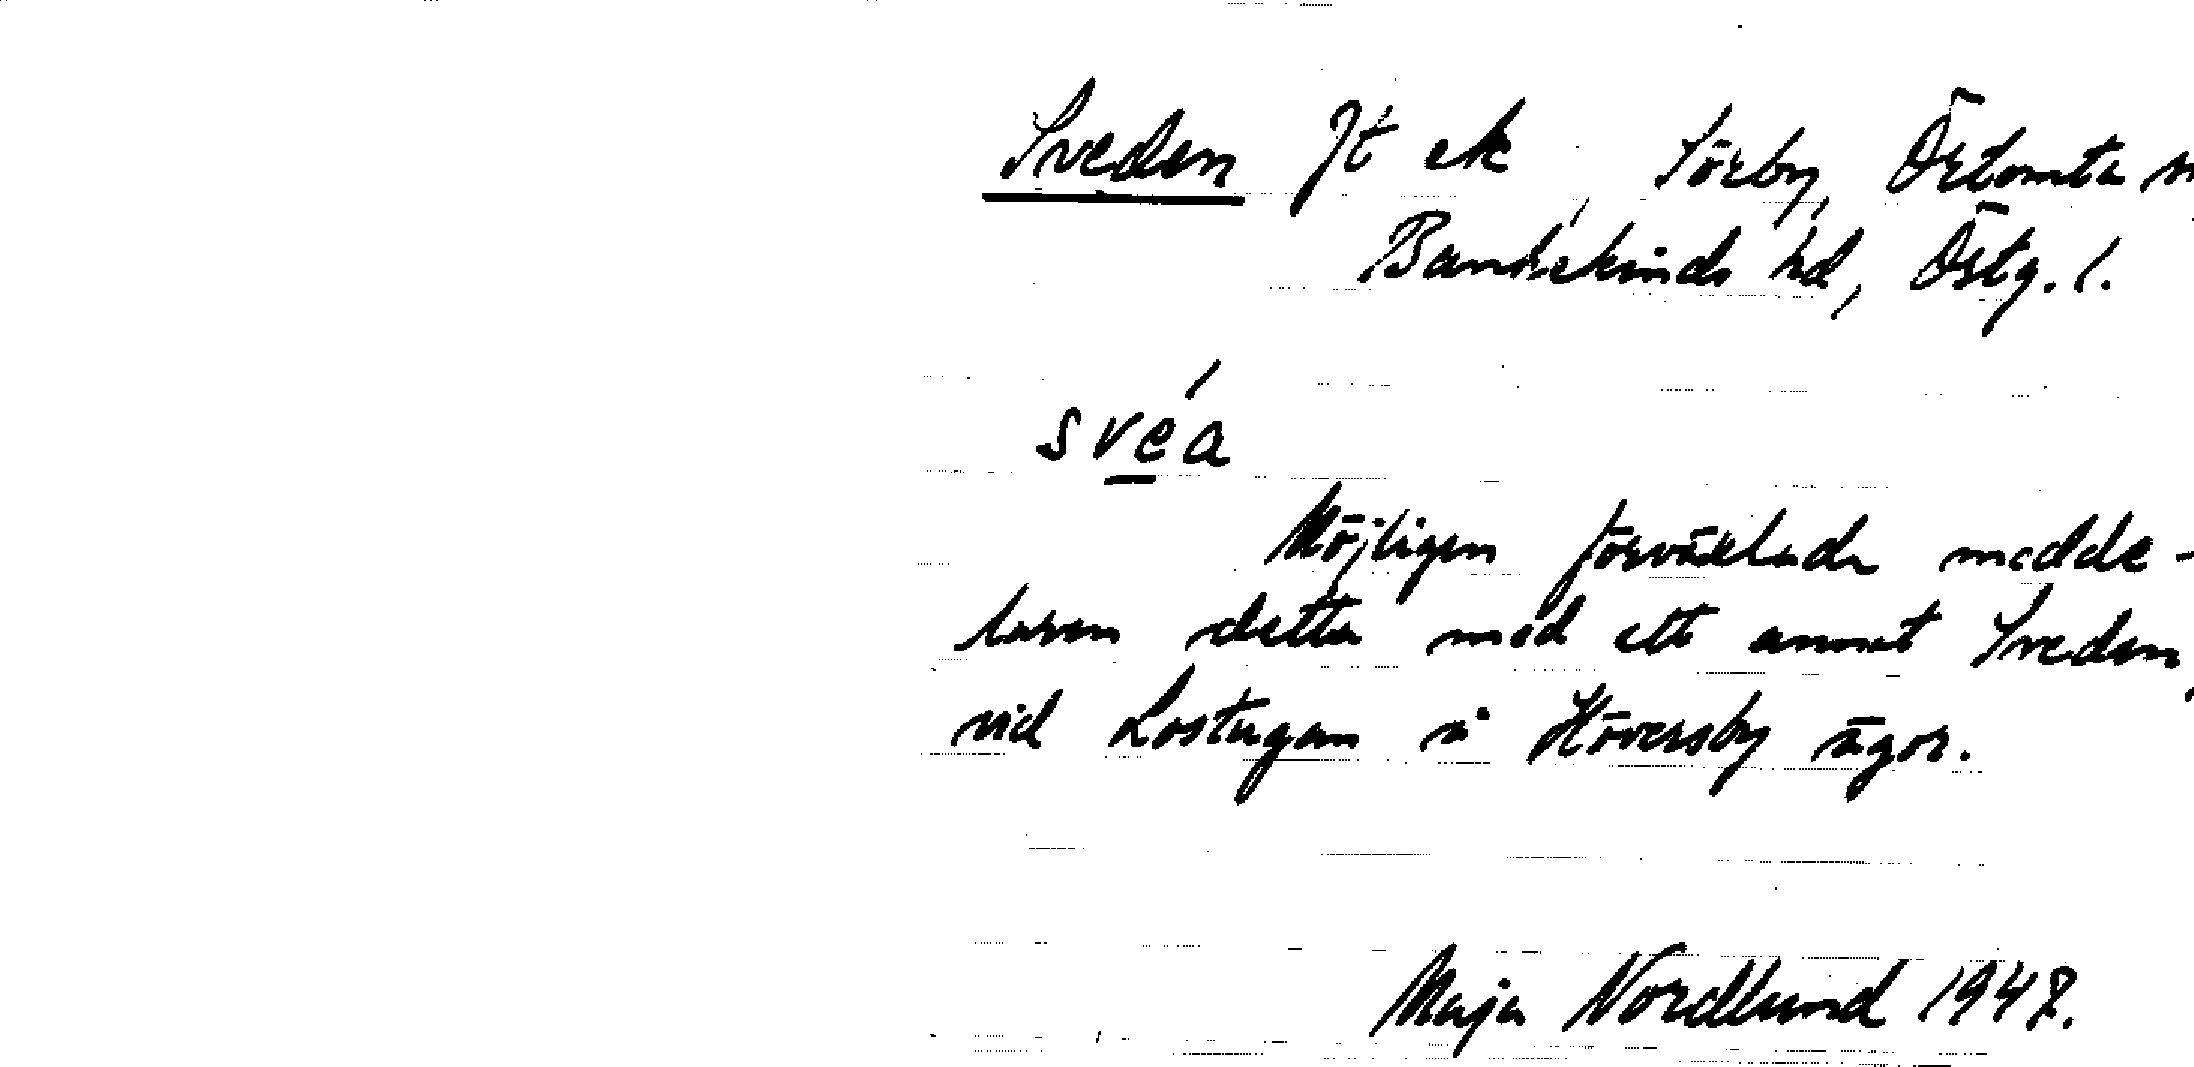 Sveden Jt ek, Sörby, Örtomta
Bankekinds hd, Östg. l.
svéa
Möjligen förväxlade medde-
laren detta med ett annat Sveden,
vid Lostugan å Höversby ägor.
Maja Nordlund 1947.